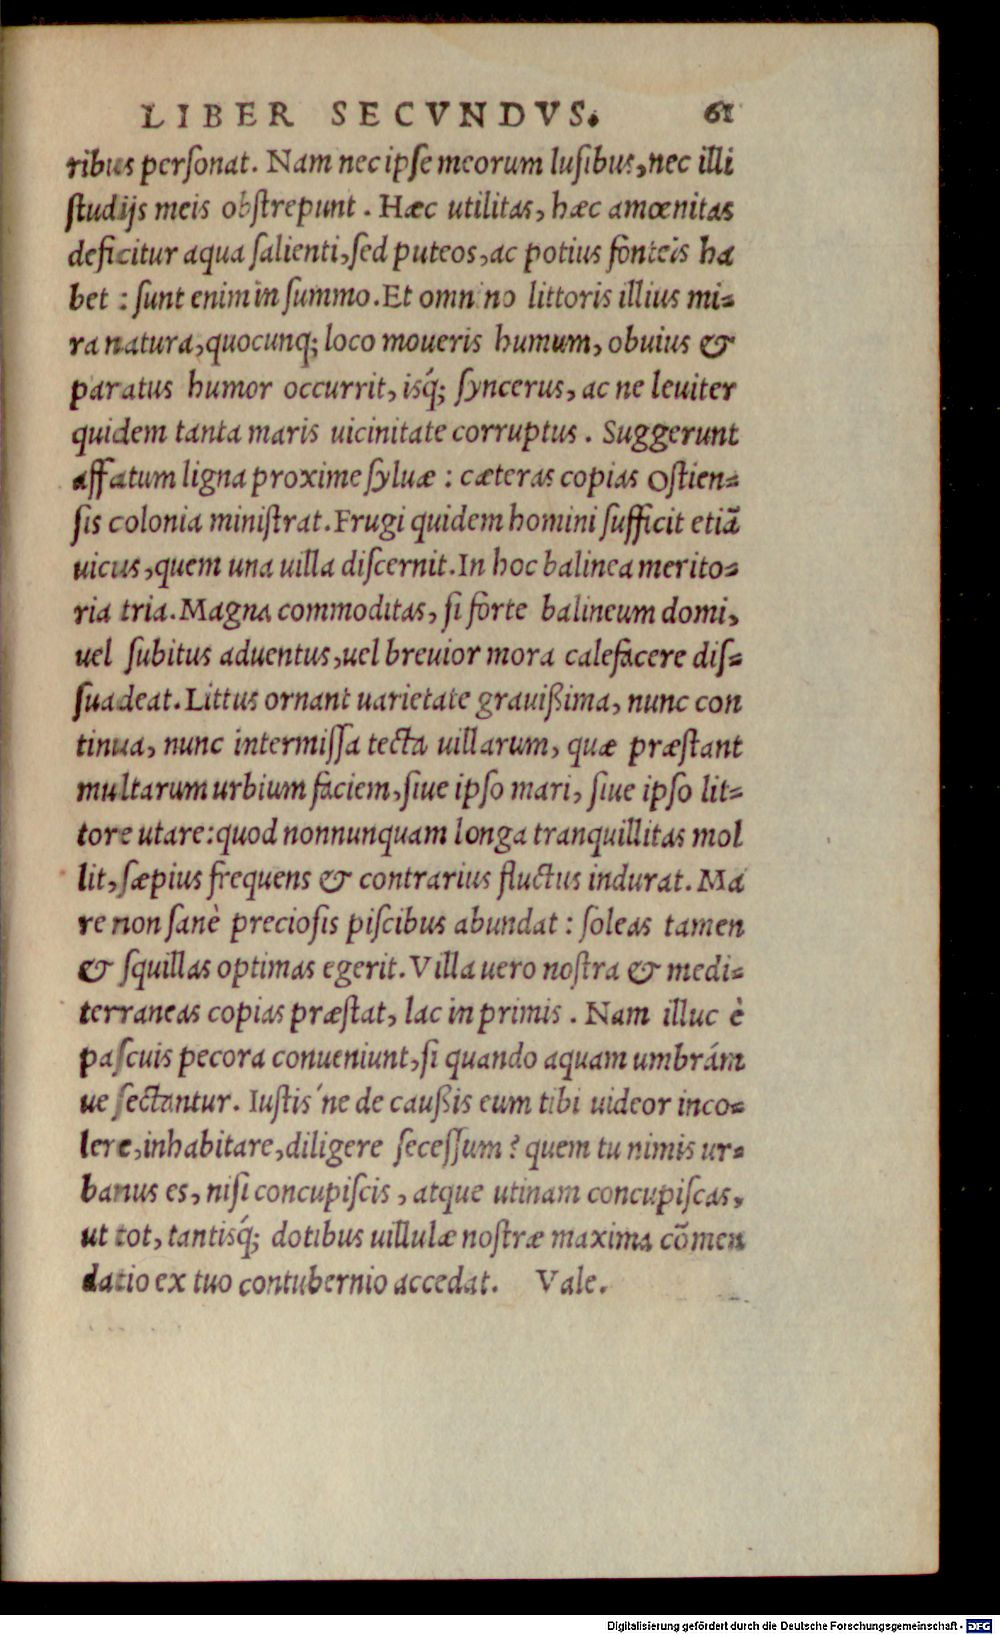 LIBER SECVNDVS. 61
ribus perſonat. Nam nec ipſe meorum luſibus, nec illi
ſtudijs meis obſtrepunt. Hæc utilitas, hæc amœnitas
deficitur aqua ſalienti, ſed puteos, ac potius fonteis ha
bet: ſunt enim in ſummo. Et omnino littoris illius mi=
ra natura, quocunq; loco moueris humum, obuius &
paratus humor occurrit, isq́; ſyncerus, ac ne leuiter
quidem tanta maris uicinitate corruptus. Suggerunt
affatum ligna proxime ſyluæ: cæteras copias Oſtien=
ſis colonia miniſtrat. Frugi quidem homini ſufficit etiã
uicus, quem una uilla diſcernit. In hoc balinea merito=
ria tria. Magna commoditas, ſi forte balineum domi,
uel ſubitus aduentus, uel breuior mora calefacere diſ=
ſuadeat. Littus ornant uarietate grauißima, nunc con
tinua, nunc intermiſſa tecta uillarum, quæ præſtant
multarum urbium faciem, ſiue ipſo mari, ſiue ipſo lit=
tore utare: quod nonnunquam longa tranquillitas mol
lit, ſæpius frequens & contrarius fluctus indurat. Ma
re non ſanè precioſis piſcibus abundat: ſoleas tamen
& ſquillas optimas egerit. Villa uero noſtra & medi=
terraneas copias præſtat, lac in primis. Nam illuc è
paſcuis pecora conueniunt, ſi quando aquam umbrám
ue ſectantur. Iuſtis ́ne de caußis eum tibi uideor inco=
lere, inhabitare, diligere ſeceſſum? quem tu nimis ur=
banus es, niſi concupiſcis, atque utinam concupiſcas,
ut tot, tantisq́; dotibus uillulæ noſtræ maxima cõmen
datio ex tuo contubernio accedat. Vale.
Digitalisierung gefördert durch die Deutsche Forschungsgemeinschaft - DFG